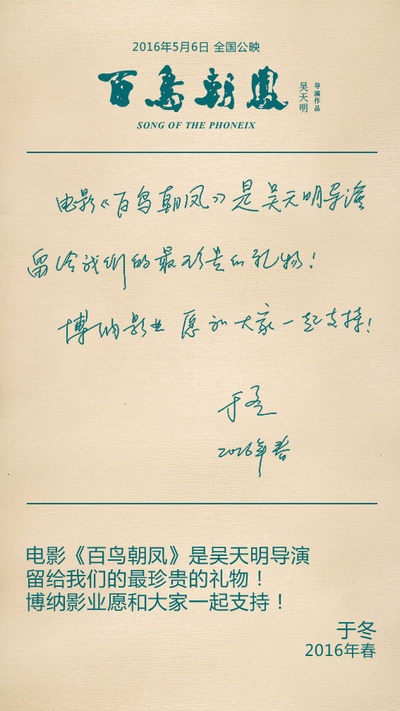 2016年5月6日 全国公映
百鸟朝凤
吴天明
导演作品
SONG OF THE PHONEIX
电影《百鸟朝凤》是吴天明导演
留给我们的最珍贵的礼物！
博纳影业愿和大家一起支持！
于冬
2016年春
电影《百鸟朝凤》是吴天明导演
留给我们的最珍贵的礼物！
博纳影业愿和大家一起支持！
于冬
2016年春